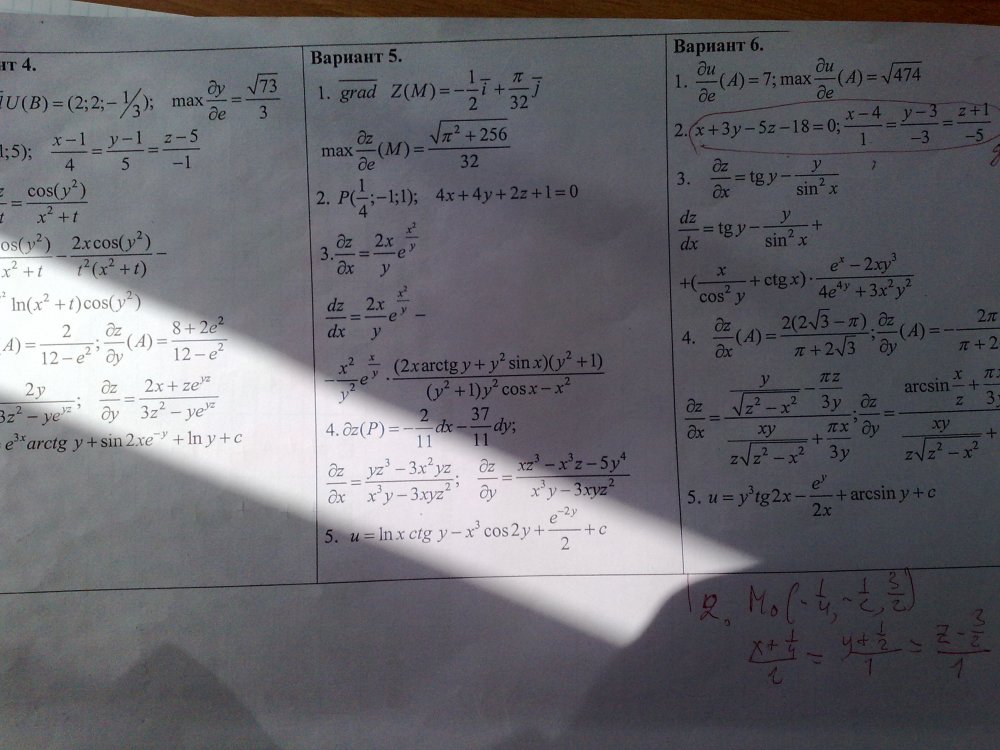 нт 4.
U(B) = (2;2;−1/3); max ∂y/∂e = √73/3
;5); (x−1)/4 = (y−1)/5 = (z−5)/−1
= cos(y²)/(x²+t)
os(y²)/(x²+t) − 2x cos(y²)/(t²(x²+t)) −
ln(x²+t)cos(y²)
A) = 2/(12−e²); ∂z/∂y (A) = (8+2e²)/(12−e²)
2y/(3z²−ye^{yz}); ∂z/∂y = (2x+ze^{yz})/(3z²−ye^{yz})
= e^{3x} arctg y + sin 2xe^{−y} + ln y + c
Вариант 5.
1. grad Z(M) = −1/2 i + π/32 j
max ∂z/∂e (M) = √(π²+256)/32
2. P(1/4;−1;1); 4x+4y+2z+1=0
3. ∂z/∂x = 2x/y e^{x²/y}
dz/dx = 2x/y e^{x²/y} −
−x²/y² e^{x/y} · (2x arctg y + y² sin x)(y²+1)/((y²+1)y² cos x − x²)
4. ∂z(P) = −2/11 dx − 37/11 dy;
∂z/∂x = (yz³−3x²yz)/(x³y−3xyz²); ∂z/∂y = (xz³−x³z−5y⁴)/(x³y−3xyz²)
5. u = ln x ctg y − x³ cos 2y + e^{−2y}/2 + c
Вариант 6.
1. ∂u/∂e (A) = 7; max ∂u/∂e (A) = √474
2. x+3y−5z−18=0; (x−4)/1 = (y−3)/−3 = (z+1)/−5
3. ∂z/∂x = tg y − y/sin² x
dz/dx = tg y − y/sin² x +
+(x/cos² y + ctg x) · (e^x − 2xy³)/(4e^{4y} + 3x²y²)
4. ∂z/∂x (A) = 2(2√3−π)/(π+2√3); ∂z/∂y (A) = − 2π/(π+2
∂z/∂x = (y/√(z²−x²) − πz/3y)/(xy/(z√(z²−x²)) + πx/3y); ∂z/∂y = (arcsin x/z + πx/3y)/(xy/(z√(z²−x²)) +
5. u = y³tg2x − e^y/2x + arcsin y + c
2. M₀(−1/4, −1/2, 3/2)
(x+1/4)/2 = (y+1/2)/1 = (z−3/2)/1